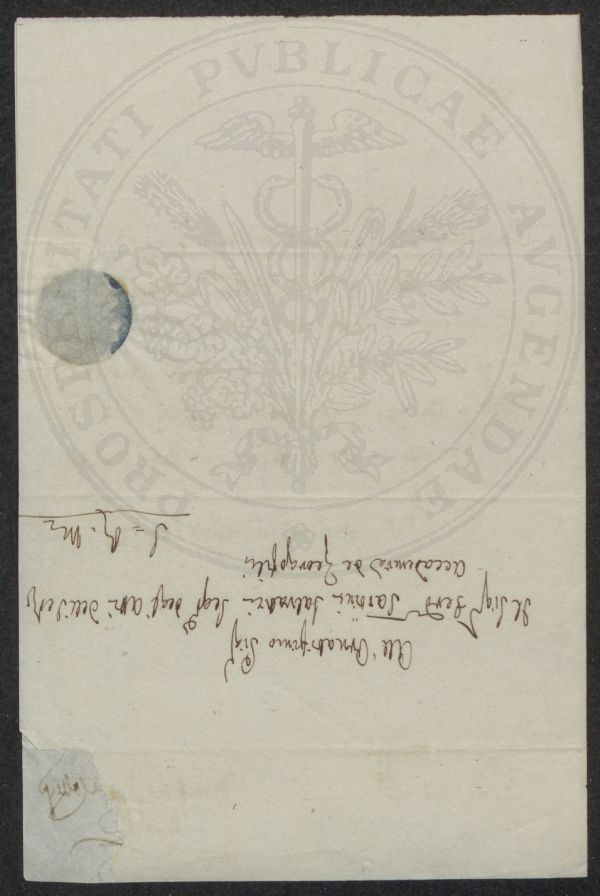 PROSPERITATI PVBLICAE AVGENDAE
All' Ornatissimo Sig.
Il Sig. Ferd. Tartini Salvatici Seg. degl' atti dell'
Accademia de Georgofili